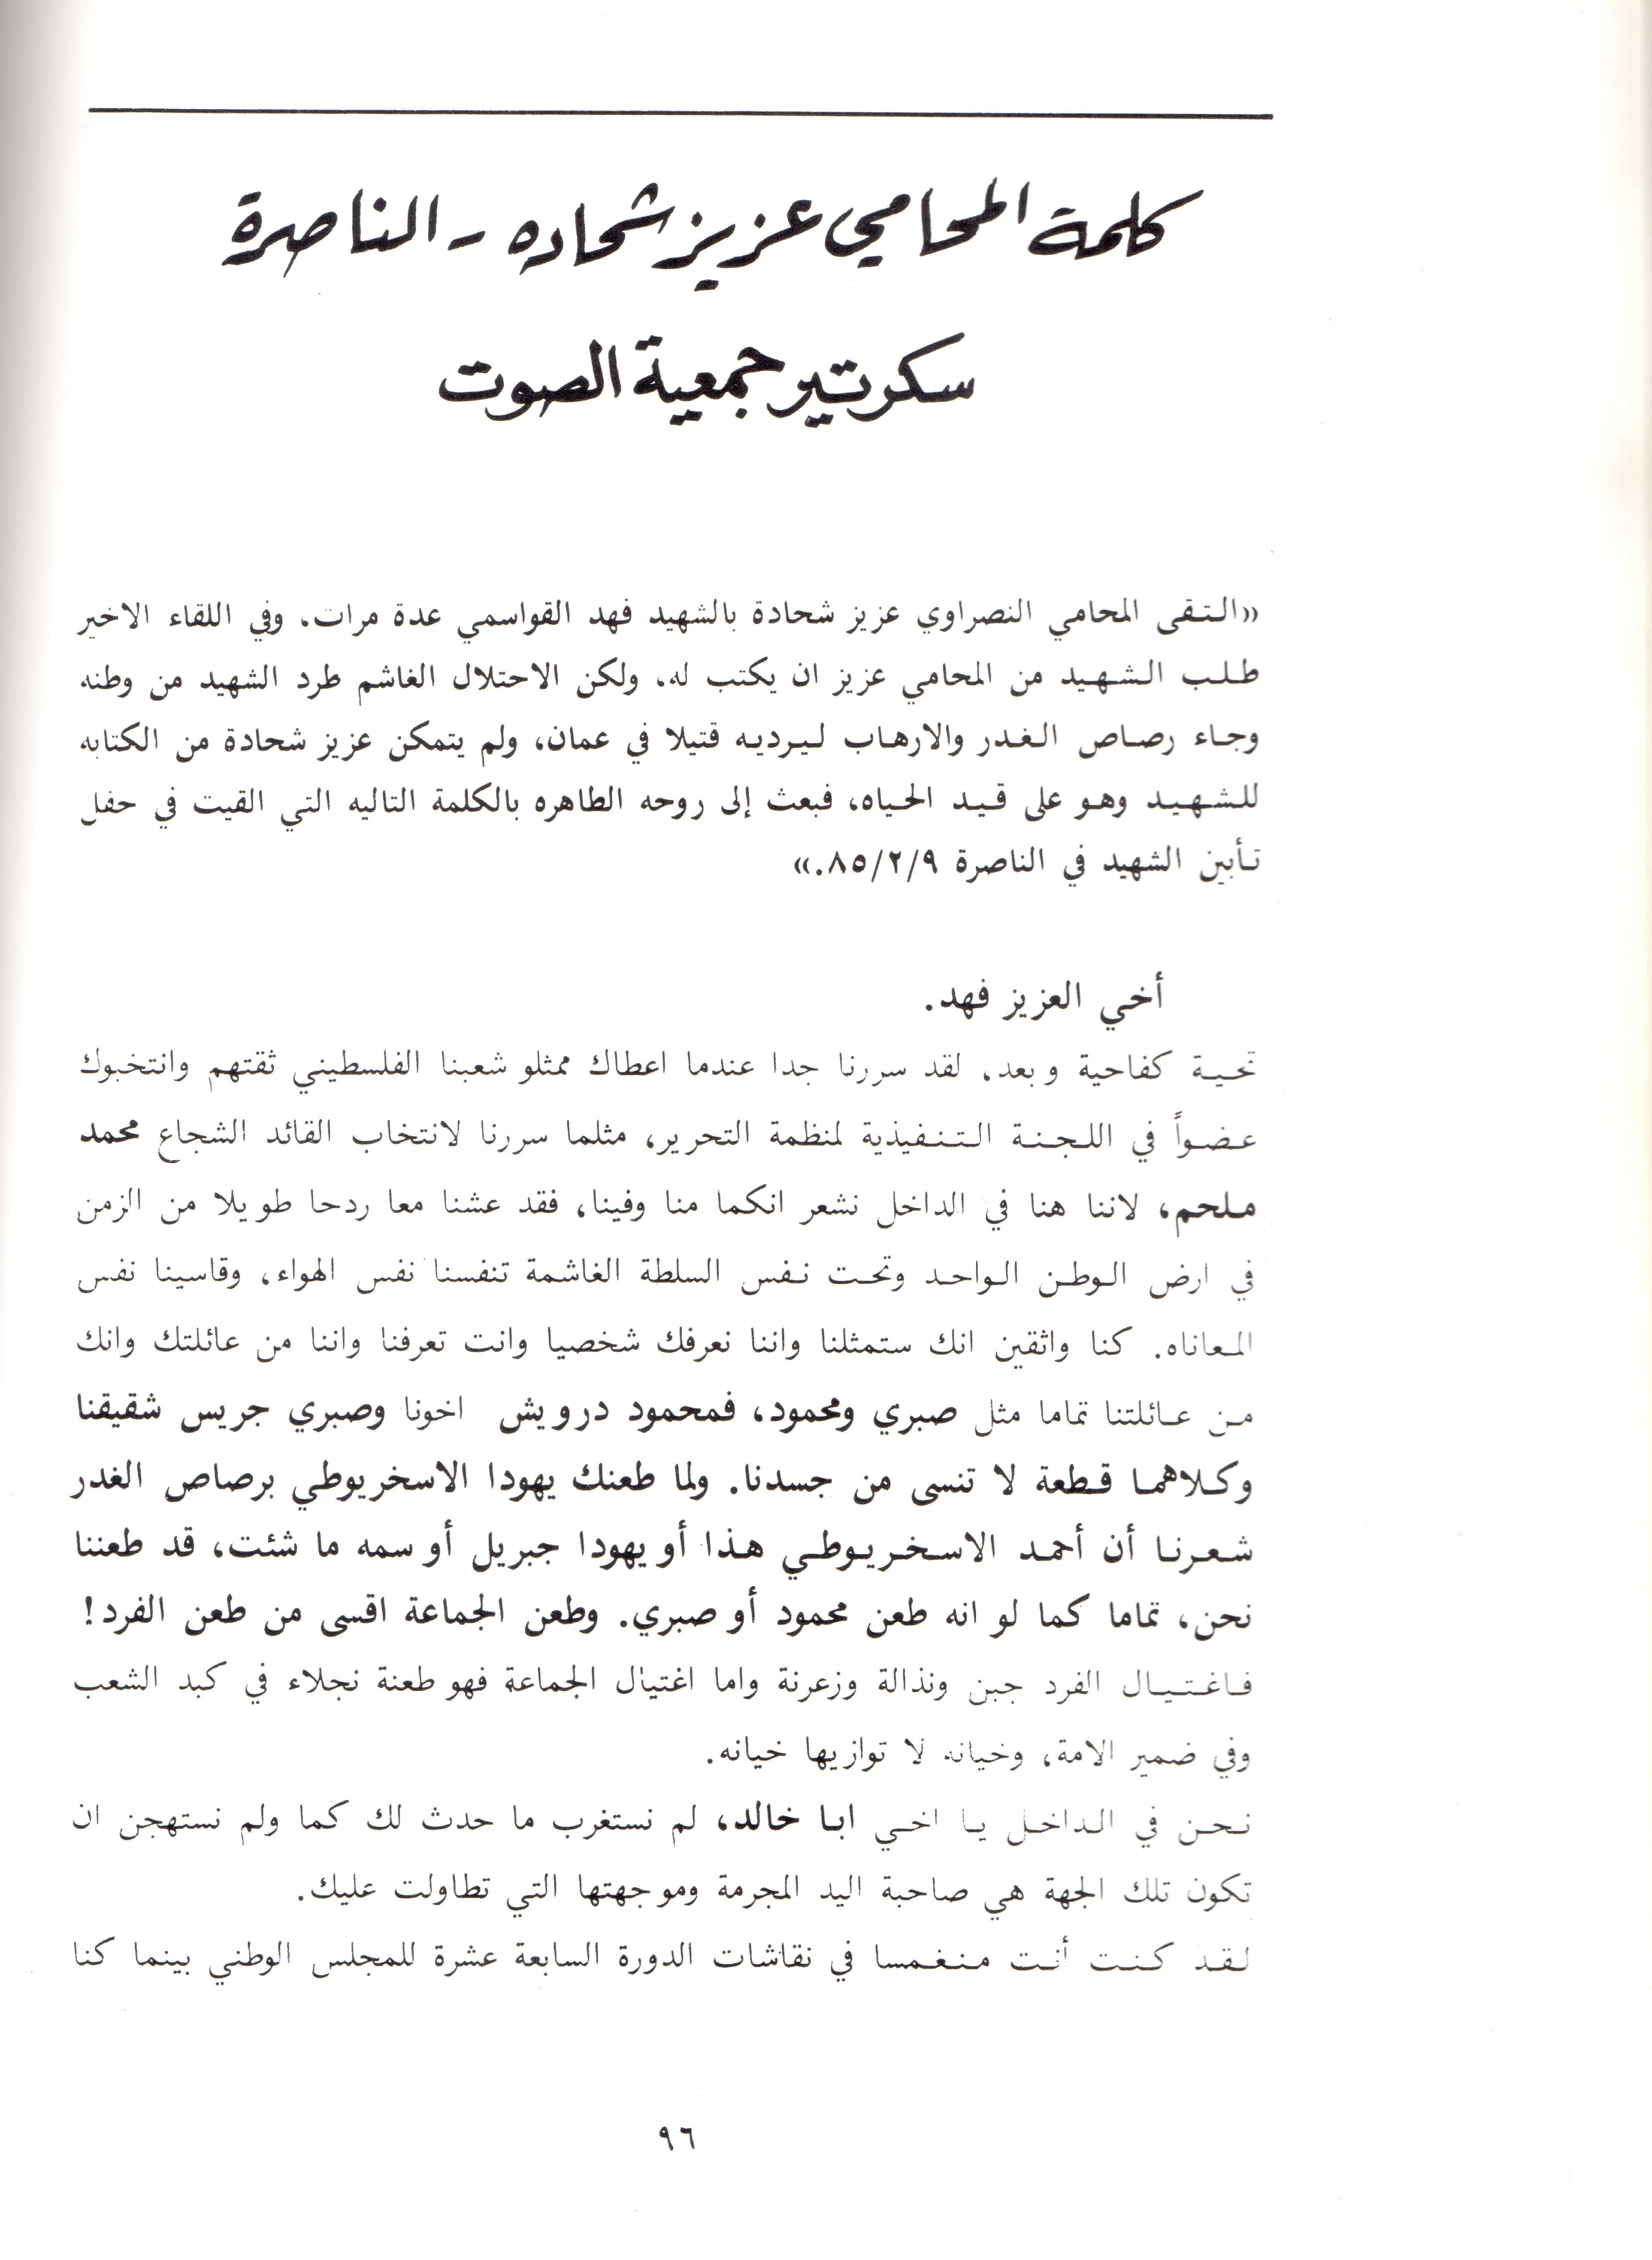 كلمة المحامي عزيز شحاده - الناصرة
سكرتير جمعية الصوت
«التقى المحامي النصراوي عزيز شحادة بالشهيد فهد القواسمي عدة مرات. وفي اللقاء الاخير
طلب الشهيد من المحامي عزيز ان يكتب له. ولكن الاحتلال الغاشم طرد الشهيد من وطنه
وجاء رصاص الغدر والارهاب ليرديه قتيلا في عمان، ولم يتمكن عزيز شحادة من الكتابه
للشهيد وهو على قيد الحياه، فبعث إلى روحه الطاهره بالكلمة التاليه التي القيت في حفل
تأبين الشهيد في الناصرة ٨٥/٢/٩.»
أخي العزيز فهد.
تحية كفاحية وبعد، لقد سررنا جدا عندما اعطاك ممثلو شعبنا الفلسطيني ثقتهم وانتخبوك
عضواً في اللجنة التنفيذية لمنظمة التحرير، مثلما سررنا لانتخاب القائد الشجاع محمد
ملحم، لاننا هنا في الداخل نشعر انكما منا وفينا، فقد عشنا معا ردحا طويلا من الزمن
في ارض الوطن الواحد وتحت نفس السلطة الغاشمة تنفسنا نفس الهواء، وقاسينا نفس
المعاناه. كنا واثقين انك ستمثلنا واننا نعرفك شخصيا وانت تعرفنا واننا من عائلتك وانك
من عائلتنا تماما مثل صبري ومحمود، فمحمود درويش اخونا وصبري جريس شقيقنا
وكلاهما قطعة لا تنسى من جسدنا. ولما طعنك يهودا الاسخريوطي برصاص الغدر
شعرنا أن أحمد الاسخريوطي هذا أو يهودا جبريل أو سمه ما شئت، قد طعننا
نحن، تماما كما لو انه طعن محمود أو صبري. وطعن الجماعة اقسى من طعن الفرد!
فاغتيال الفرد جبن ونذالة وزعرنة واما اغتيال الجماعة فهو طعنة نجلاء في كبد الشعب
وفي ضمير الامة، وخيانه لا توازيها خيانه.
نحن في الداخل يا اخي ابا خالد، لم نستغرب ما حدث لك كما ولم نستهجن ان
تكون تلك الجهة هي صاحبة اليد المجرمة وموجهتها التي تطاولت عليك.
لقد كنت أنت منغمسا في نقاشات الدورة السابعة عشرة للمجلس الوطني بينما كنا
٩٦